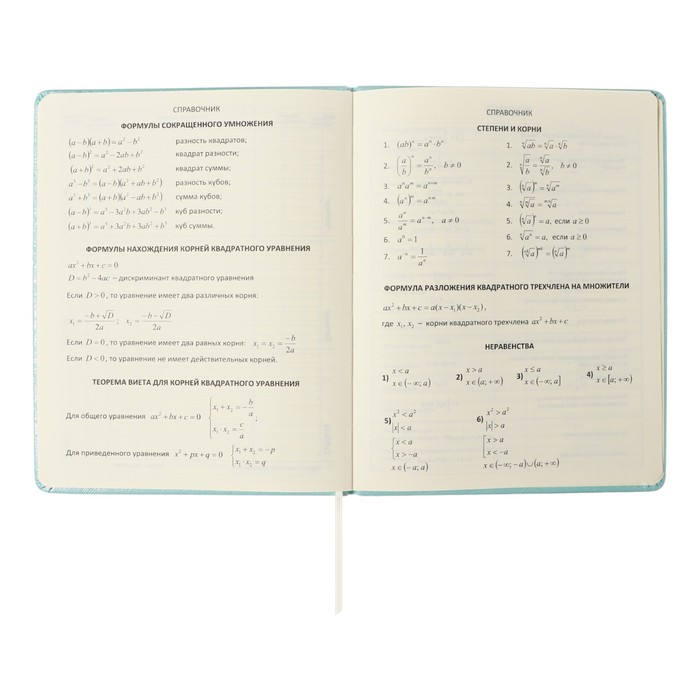 СПРАВОЧНИК
ФОРМУЛЫ СОКРАЩЕННОГО УМНОЖЕНИЯ
(a−b)(a+b)=a²−b² разность квадратов;
(a−b)²=a²−2ab+b² квадрат разности;
(a+b)²=a²+2ab+b² квадрат суммы;
a³−b³=(a−b)(a²+ab+b²) разность кубов;
a³+b³=(a+b)(a²−ab+b²) сумма кубов;
(a−b)³=a³−3a²b+3ab²−b³ куб разности;
(a+b)³=a³+3a²b+3ab²+b³ куб суммы.
ФОРМУЛЫ НАХОЖДЕНИЯ КОРНЕЙ КВАДРАТНОГО УРАВНЕНИЯ
ax²+bx+c=0
D=b²−4ac − дискриминант квадратного уравнения
Если D>0, то уравнение имеет два различных корня:
x₁=(−b+√D)/2a; x₂=(−b−√D)/2a
Если D=0, то уравнение имеет два равных корня: x₁=x₂=−b/2a
Если D<0, то уравнение не имеет действительных корней.
ТЕОРЕМА ВИЕТА ДЛЯ КОРНЕЙ КВАДРАТНОГО УРАВНЕНИЯ
Для общего уравнения ax²+bx+c=0 {x₁+x₂=−b/a, x₁·x₂=c/a;
Для приведенного уравнения x²+px+q=0 {x₁+x₂=−p x₁·x₂=q
СПРАВОЧНИК
СТЕПЕНИ И КОРНИ
1. (ab)ⁿ=aⁿ·bⁿ 1. ⁿ√ab=ⁿ√a·ⁿ√b
2. (a/b)ⁿ=aⁿ/bⁿ, b≠0 2. ⁿ√(a/b)=ⁿ√a/ⁿ√b, b≠0
3. aⁿaᵐ=aⁿ⁺ᵐ 3. (ⁿ√a)ᵐ=ⁿ√aᵐ
4. (aⁿ)ᵐ=aⁿ·ᵐ 4. ᵐ√ⁿ√a=ᵐ·ⁿ√a
5. aⁿ/aᵐ=aⁿ⁻ᵐ, a≠0 5. (ⁿ√a)ⁿ=a, если a≥0
6. a⁰=1 6. ⁿ√aⁿ=a, если a≥0
7. a⁻ⁿ=1/aⁿ
ФОРМУЛА РАЗЛОЖЕНИЯ КВАДРАТНОГО ТРЕХЧЛЕНА НА МНОЖИТЕЛИ
ax²+bx+c=a(x−x₁)(x−x₂),
где x₁, x₂ − корни квадратного трехчлена ax²+bx+c
НЕРАВЕНСТВА
1) x<a x∈(−∞;a) 2) x>a x∈(a;+∞) 3) x≤a x∈(−∞;a] 4) x≥a x∈[a;+∞)
5) x²<a² 6) x²>a²
|x|<a |x|>a
{x<a [x>a
x>−a x<−a
x∈(−a;a) x∈(−∞;−a)∪(a;+∞)